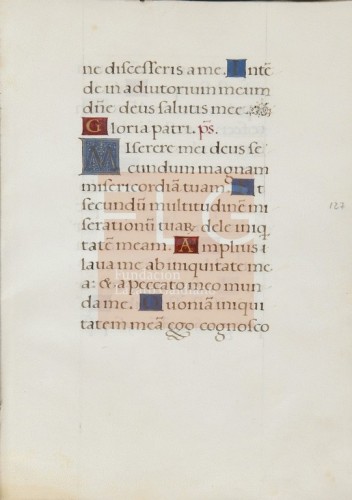 ne discesseris a me. Intē
de in adiutorium meum
dñe deus salutis mee.
Gloria patri. ps.
Miserere mei deus se
cundum magnam
misericordiā tuam. Et
secundū multitudinē mi
serationū tuaꝝ dele iniq
tatē meam. Amplius
laua me ab iniquitate me
a: & a peccato meo mun
da me. Quoniā iniqui
tatem meā ego cognosco
127
FLG
Fundación